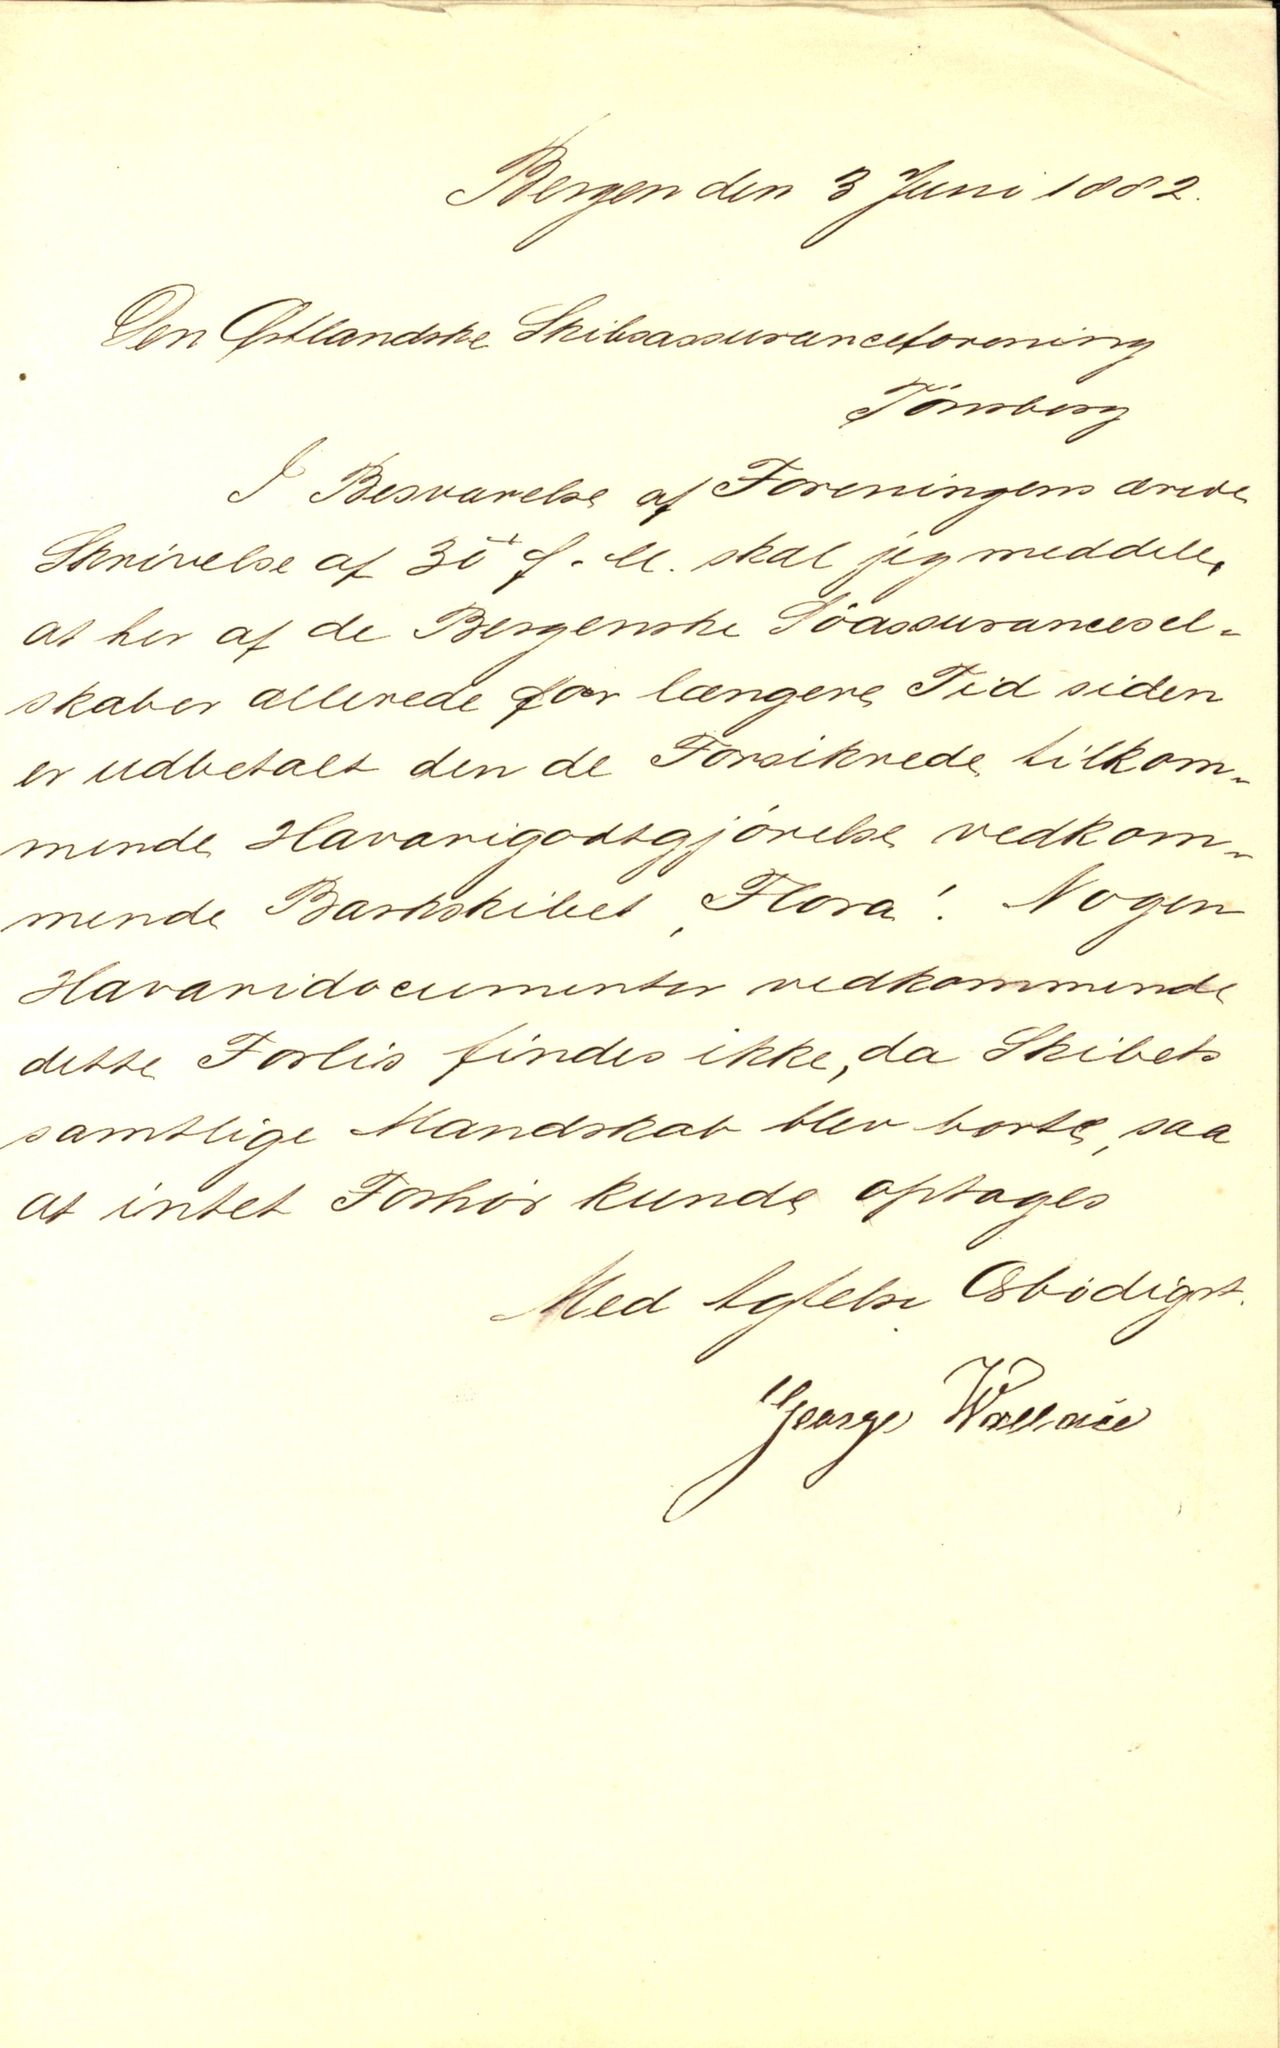 Bergen den 3 Juni 1882.
Den Østlandske Skibsassuranceforening
Tönsberg
I Besvarelse af Foreningens ærede
Skrivelse af 30' f. M. skal jeg meddele,
at her af de Bergenske Söassurancesel-
skaber allerede for længere Tid siden
er udbetalt den de Forsikrede tilkom-
mende Havarigodtgjörelse vedkom-
mende Barkskibet "Flora". Nogen
Havaridocumenter vedkommende
dette Forlis findes ikke, da Skibets
samtlige Mandskab blev borte, saa
at intet Forhör kunde optages
Med Agtelse Ærbödigst.
George Wallace